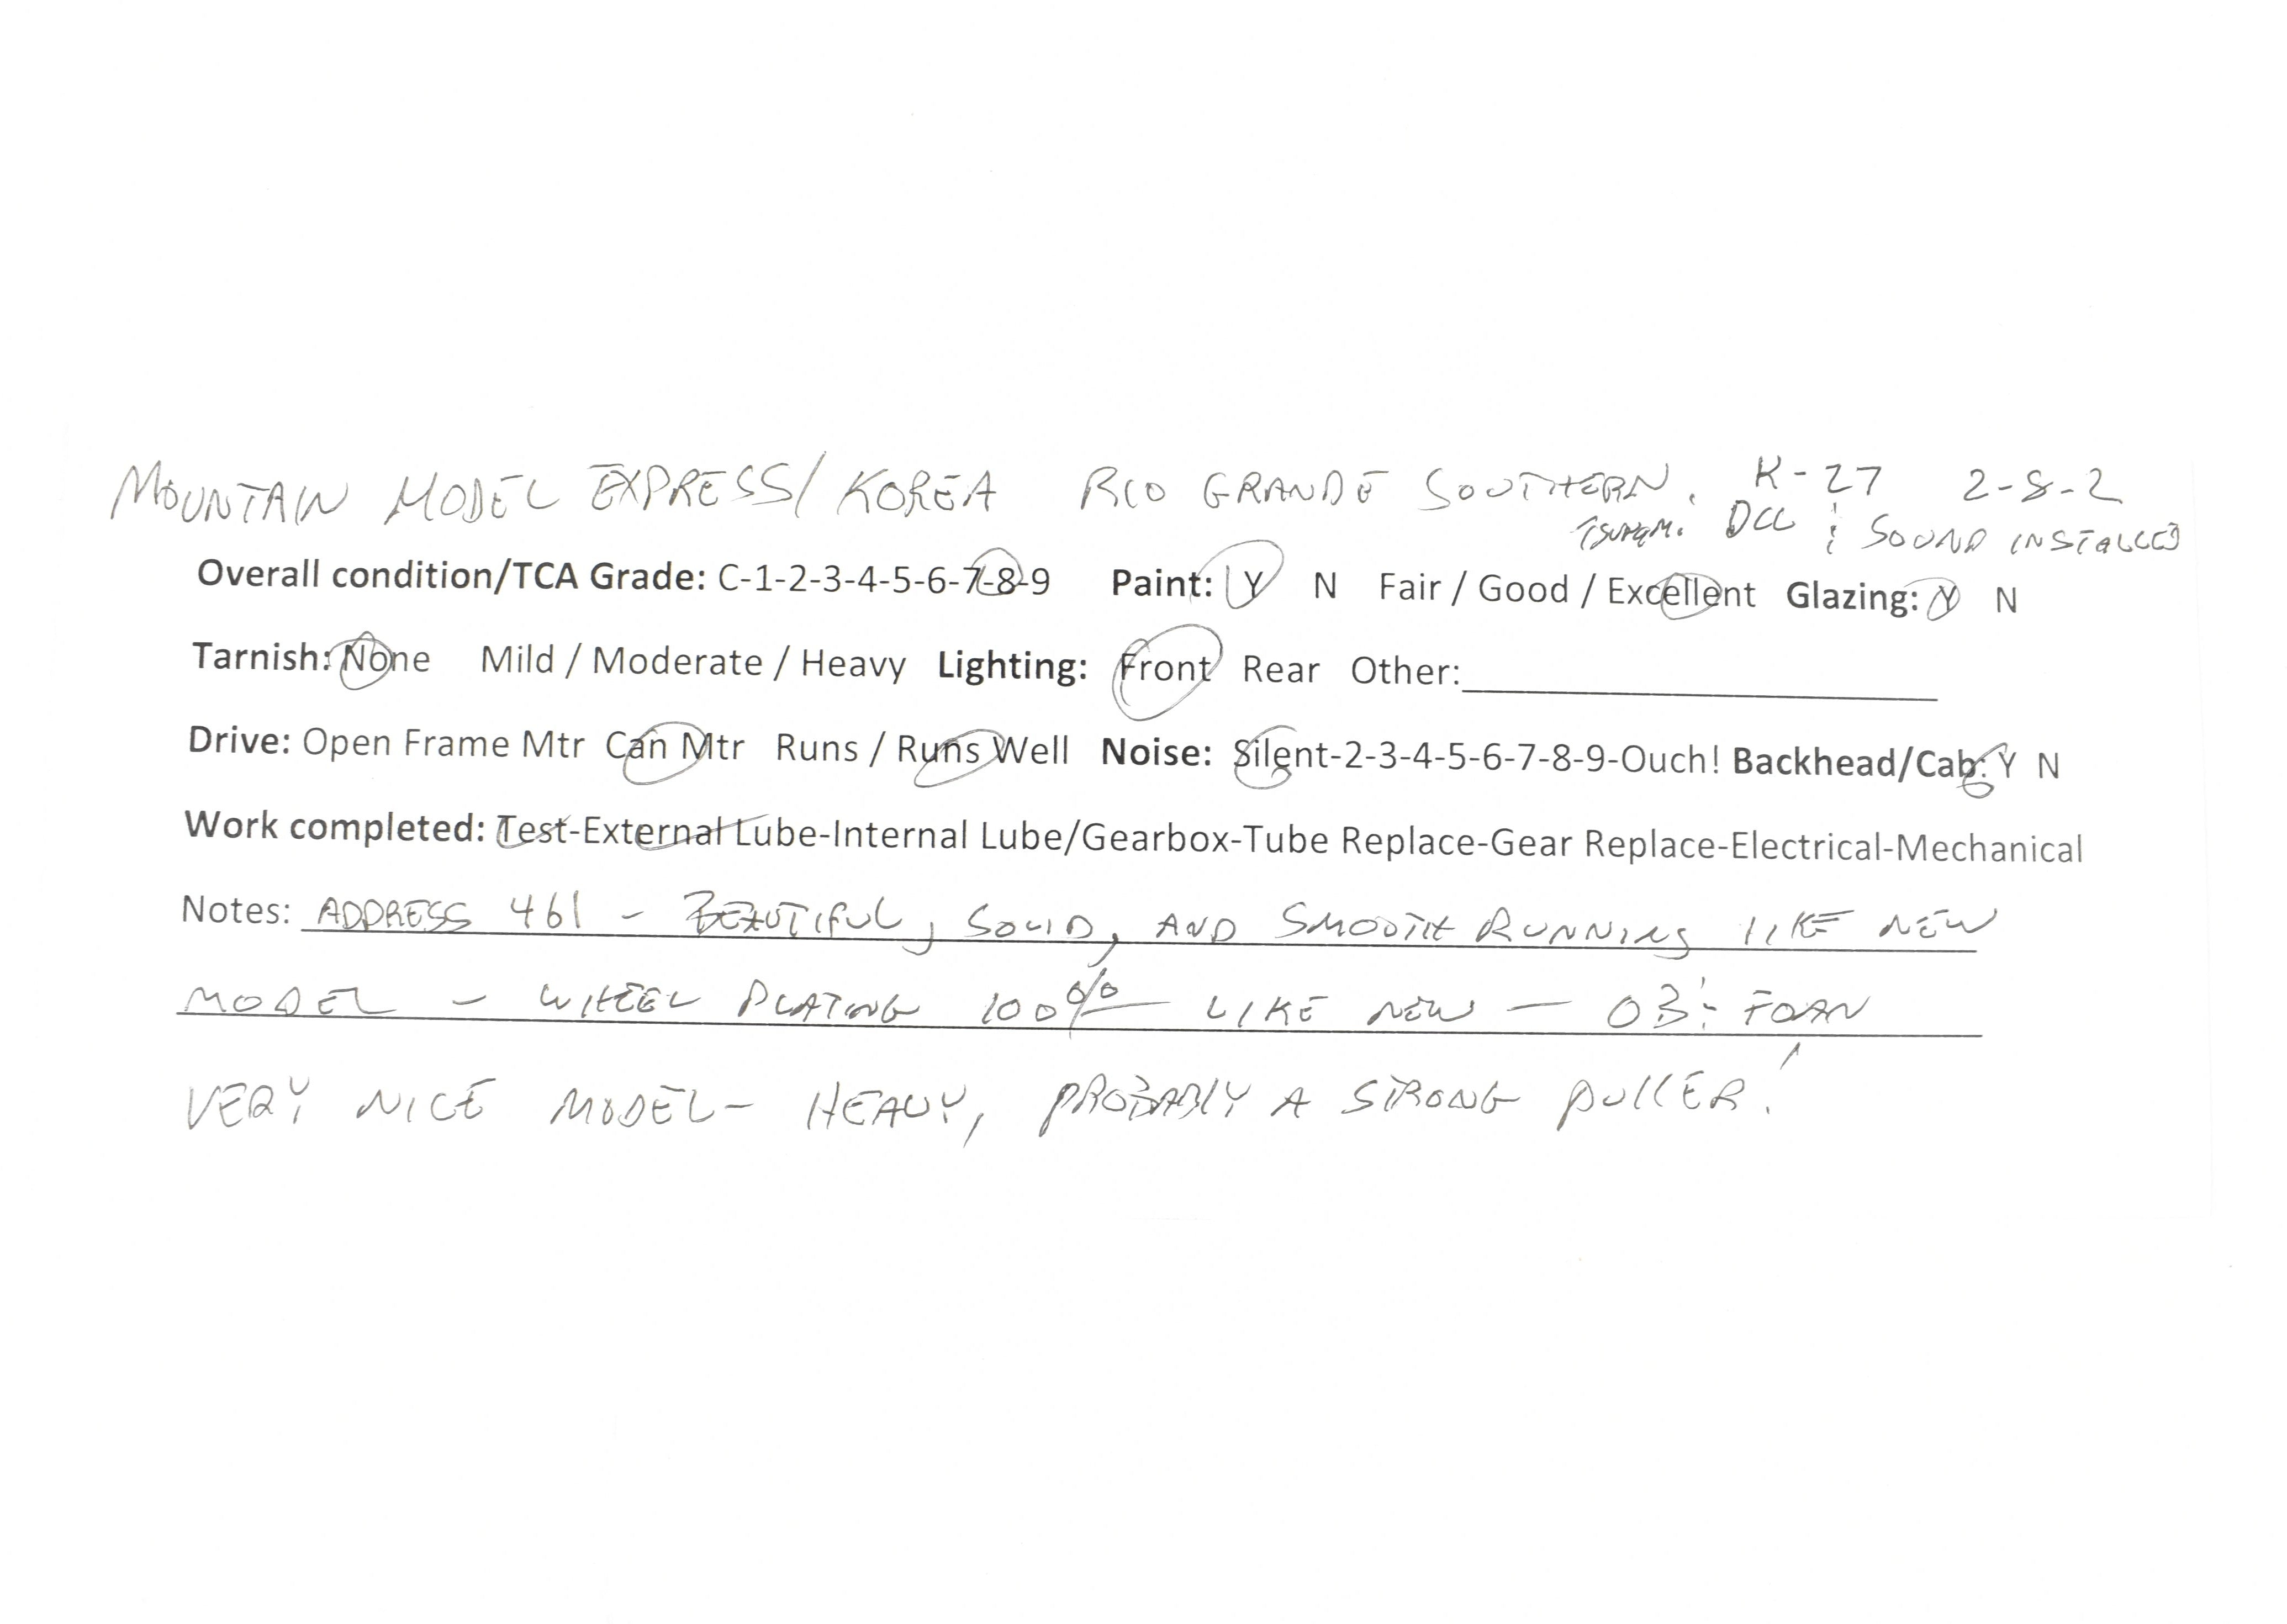 MOUNTAIN MODEL EXPRESS/KOREA RIO GRANDE SOUTHERN. K-27 2-8-2
TSUNAMI DCC & SOUND INSTALLED
Overall condition/TCA Grade: C-1-2-3-4-5-6-7-8-9 Paint: Y N Fair / Good / Excellent Glazing: Y N
Tarnish: None Mild / Moderate / Heavy Lighting: Front Rear Other:
Drive: Open Frame Mtr Can Mtr Runs / Runs Well Noise: Silent-2-3-4-5-6-7-8-9-Ouch! Backhead/Cab: Y N
Work completed: Test-External Lube-Internal Lube/Gearbox-Tube Replace-Gear Replace-Electrical-Mechanical
Notes: ADDRESS 461 - BEAUTIFUL, SOLID, AND SMOOTH RUNNING LIKE NEW
MODEL - WHEEL PLATING 100% LIKE NEW - OB & FOAM
VERY NICE MODEL - HEAVY, PROBABLY A STRONG PULLER!